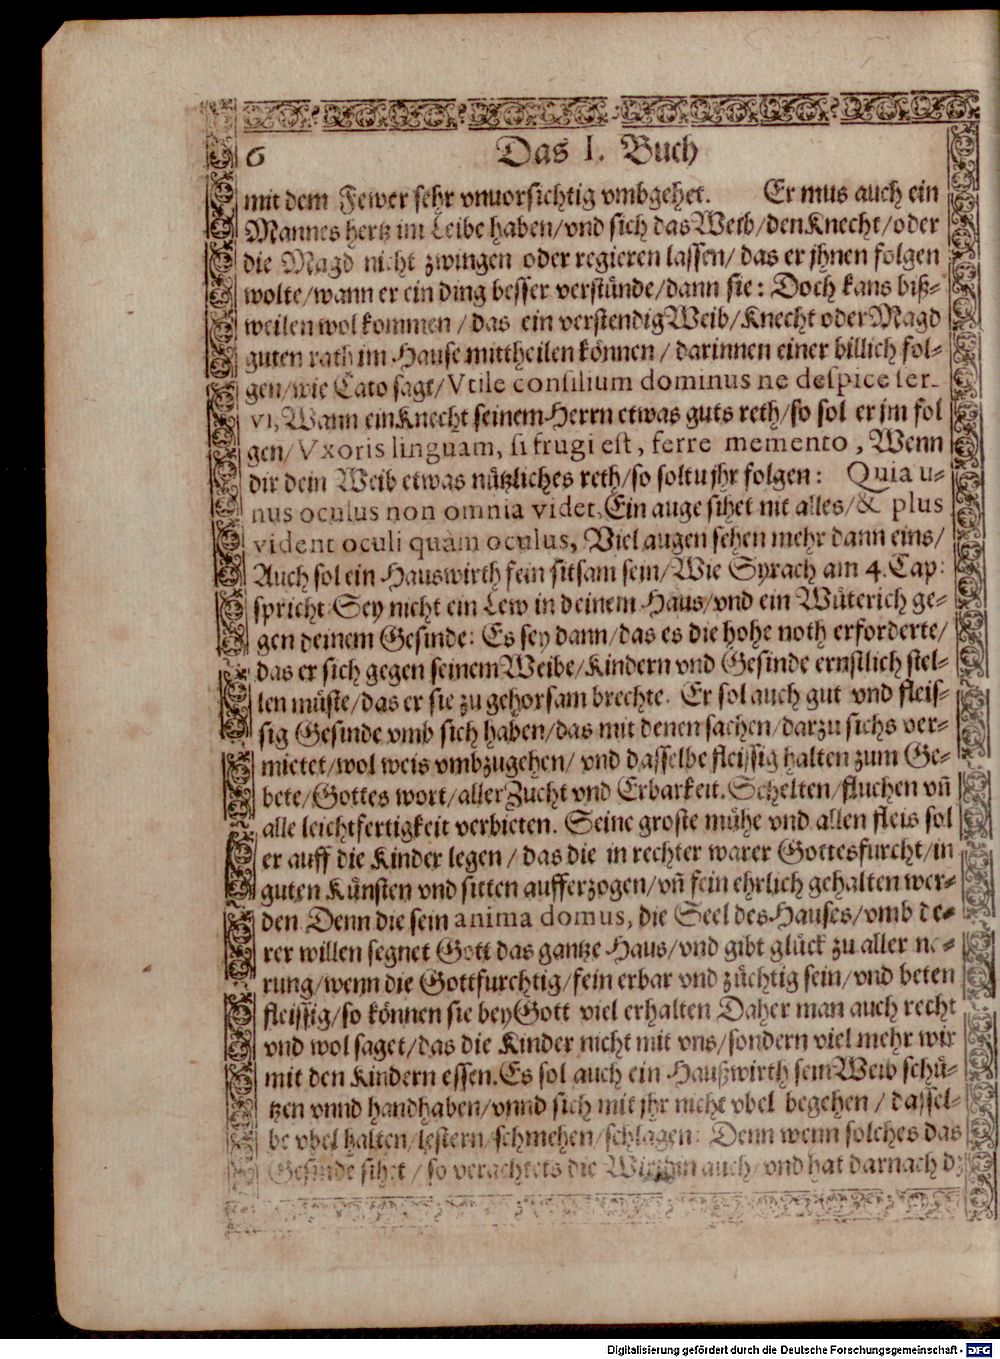 6
Das I. Buch
mit dem Fewer sehr vnuorsichtig vmbgehet. Er mus auch ein
Mannes hertz im Leibe haben/vnd sich das Weib/den Knecht/oder
die Magd nicht zwingen oder regieren lassen/ das er jhnen folgen
wolte/wann er ein ding besser verstünde/dann sie: Doch kans biß-
weilen wol kommen / das ein verstendig Weib/Knecht oder Magd
guten rath im Hause mittheilen können / darinnen einer billich fol-
gen/wie Cato sagt/Vtile consilium dominus ne despice ser-
vi, Wann ein Knecht seinem Herrn etwas guts reth/so sol er jm fol
gen/Vxoris linguam, si frugi est, ferre memento, Wenn
dir dein Weib etwas nützliches reth/so soltu jhr folgen: Quia u-
nus oculus non omnia videt, Ein auge sihet nit alles/& plus
vident oculi quàm oculus, Viel augen sehen mehr dann eins/
Auch sol ein Hauswirth fein sitsam sein/Wie Syrach am 4. Cap:
spricht: Sey nicht ein Lew in deinem Haus/vnd ein Wüterich ge-
gen deinem Gesinde: Es sey dann/das es die hohe noth erforderte/
das er sich gegen seinem Weibe/Kindern vnd Gesinde ernstlich stel-
len müste/das er sie zu gehorsam brechte. Er sol auch gut vnd fleis-
sig Gesinde vmb sich haben/das mit denen sachen/darzu sichs ver-
mietet/wol weis vmbzugehen/ vnd dasselbe fleissig halten zum Ge-
bete/Gottes wort/aller Zucht vnd Erbarkeit. Schelten/fluchen vñ
alle leichtfertigkeit verbieten. Seine groste mühe vnd allen fleis sol
er auff die Kinder legen / das die in rechter warer Gottesfurcht/in
guten Künsten vnd sitten aufferzogen/vñ fein ehrlich gehalten wer-
den Denn die sein anima domus, die Seel des Hauses/vmb de-
rer willen segnet Gott das gantze Haus/vnd gibt glück zu aller ne-
rung/wenn die Gottfurchtig/fein erbar vnd züchtig sein/vnd beten
fleissig/so können sie bey Gott viel erhalten Daher man auch recht
vnd wol saget/das die Kinder nicht mit vns/sondern viel mehr wir
mit den Kindern essen. Es sol auch ein Haußwirth sein Weib schü-
tzen vnnd handhaben/vnnd sich mit jhr nicht vbel begehen / dassel-
be vbel halten/lestern/schmehen/schlagen: Denn wenn solches das
Gesinde sihet / so verachtets die Wirthin auch/vnd hat darnach dz
Digitalisierung gefördert durch die Deutsche Forschungsgemeinschaft - DFG